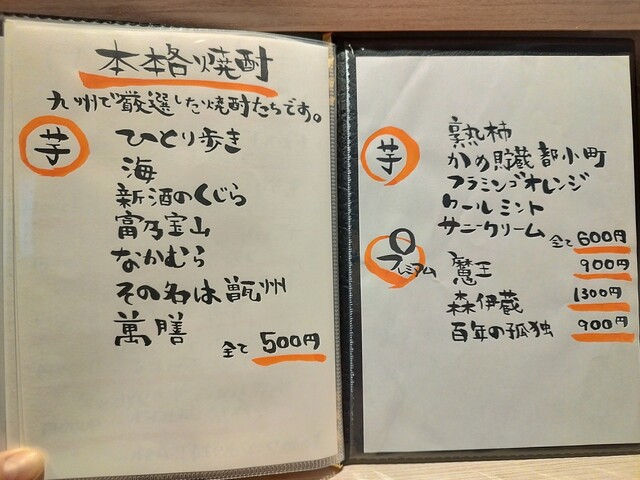 本格焼酎
九州で厳選した焼酎たちです。
芋
ひとり歩き
海
新酒のくじら
富乃宝山
なかむら
その名は甑州
萬膳
全て 500円
芋
熟柿
かめ貯蔵 都小町
フラミンゴオレンジ
クールミント
サニークリーム
全て 600円
プレミアム
魔王 900円
森伊蔵 1300円
百年の孤独 900円